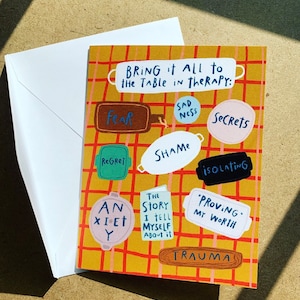 BRING IT ALL TO
THE TABLE IN THERAPY:
FEAR
SAD
NESS
SECRETS
SHAME
REGRET
ISOLATING
AN
XIET
Y
THE
STORY
I TELL
MYSELF
ABOUT IT
"PROVING"
MY WORTH
TRAUMA